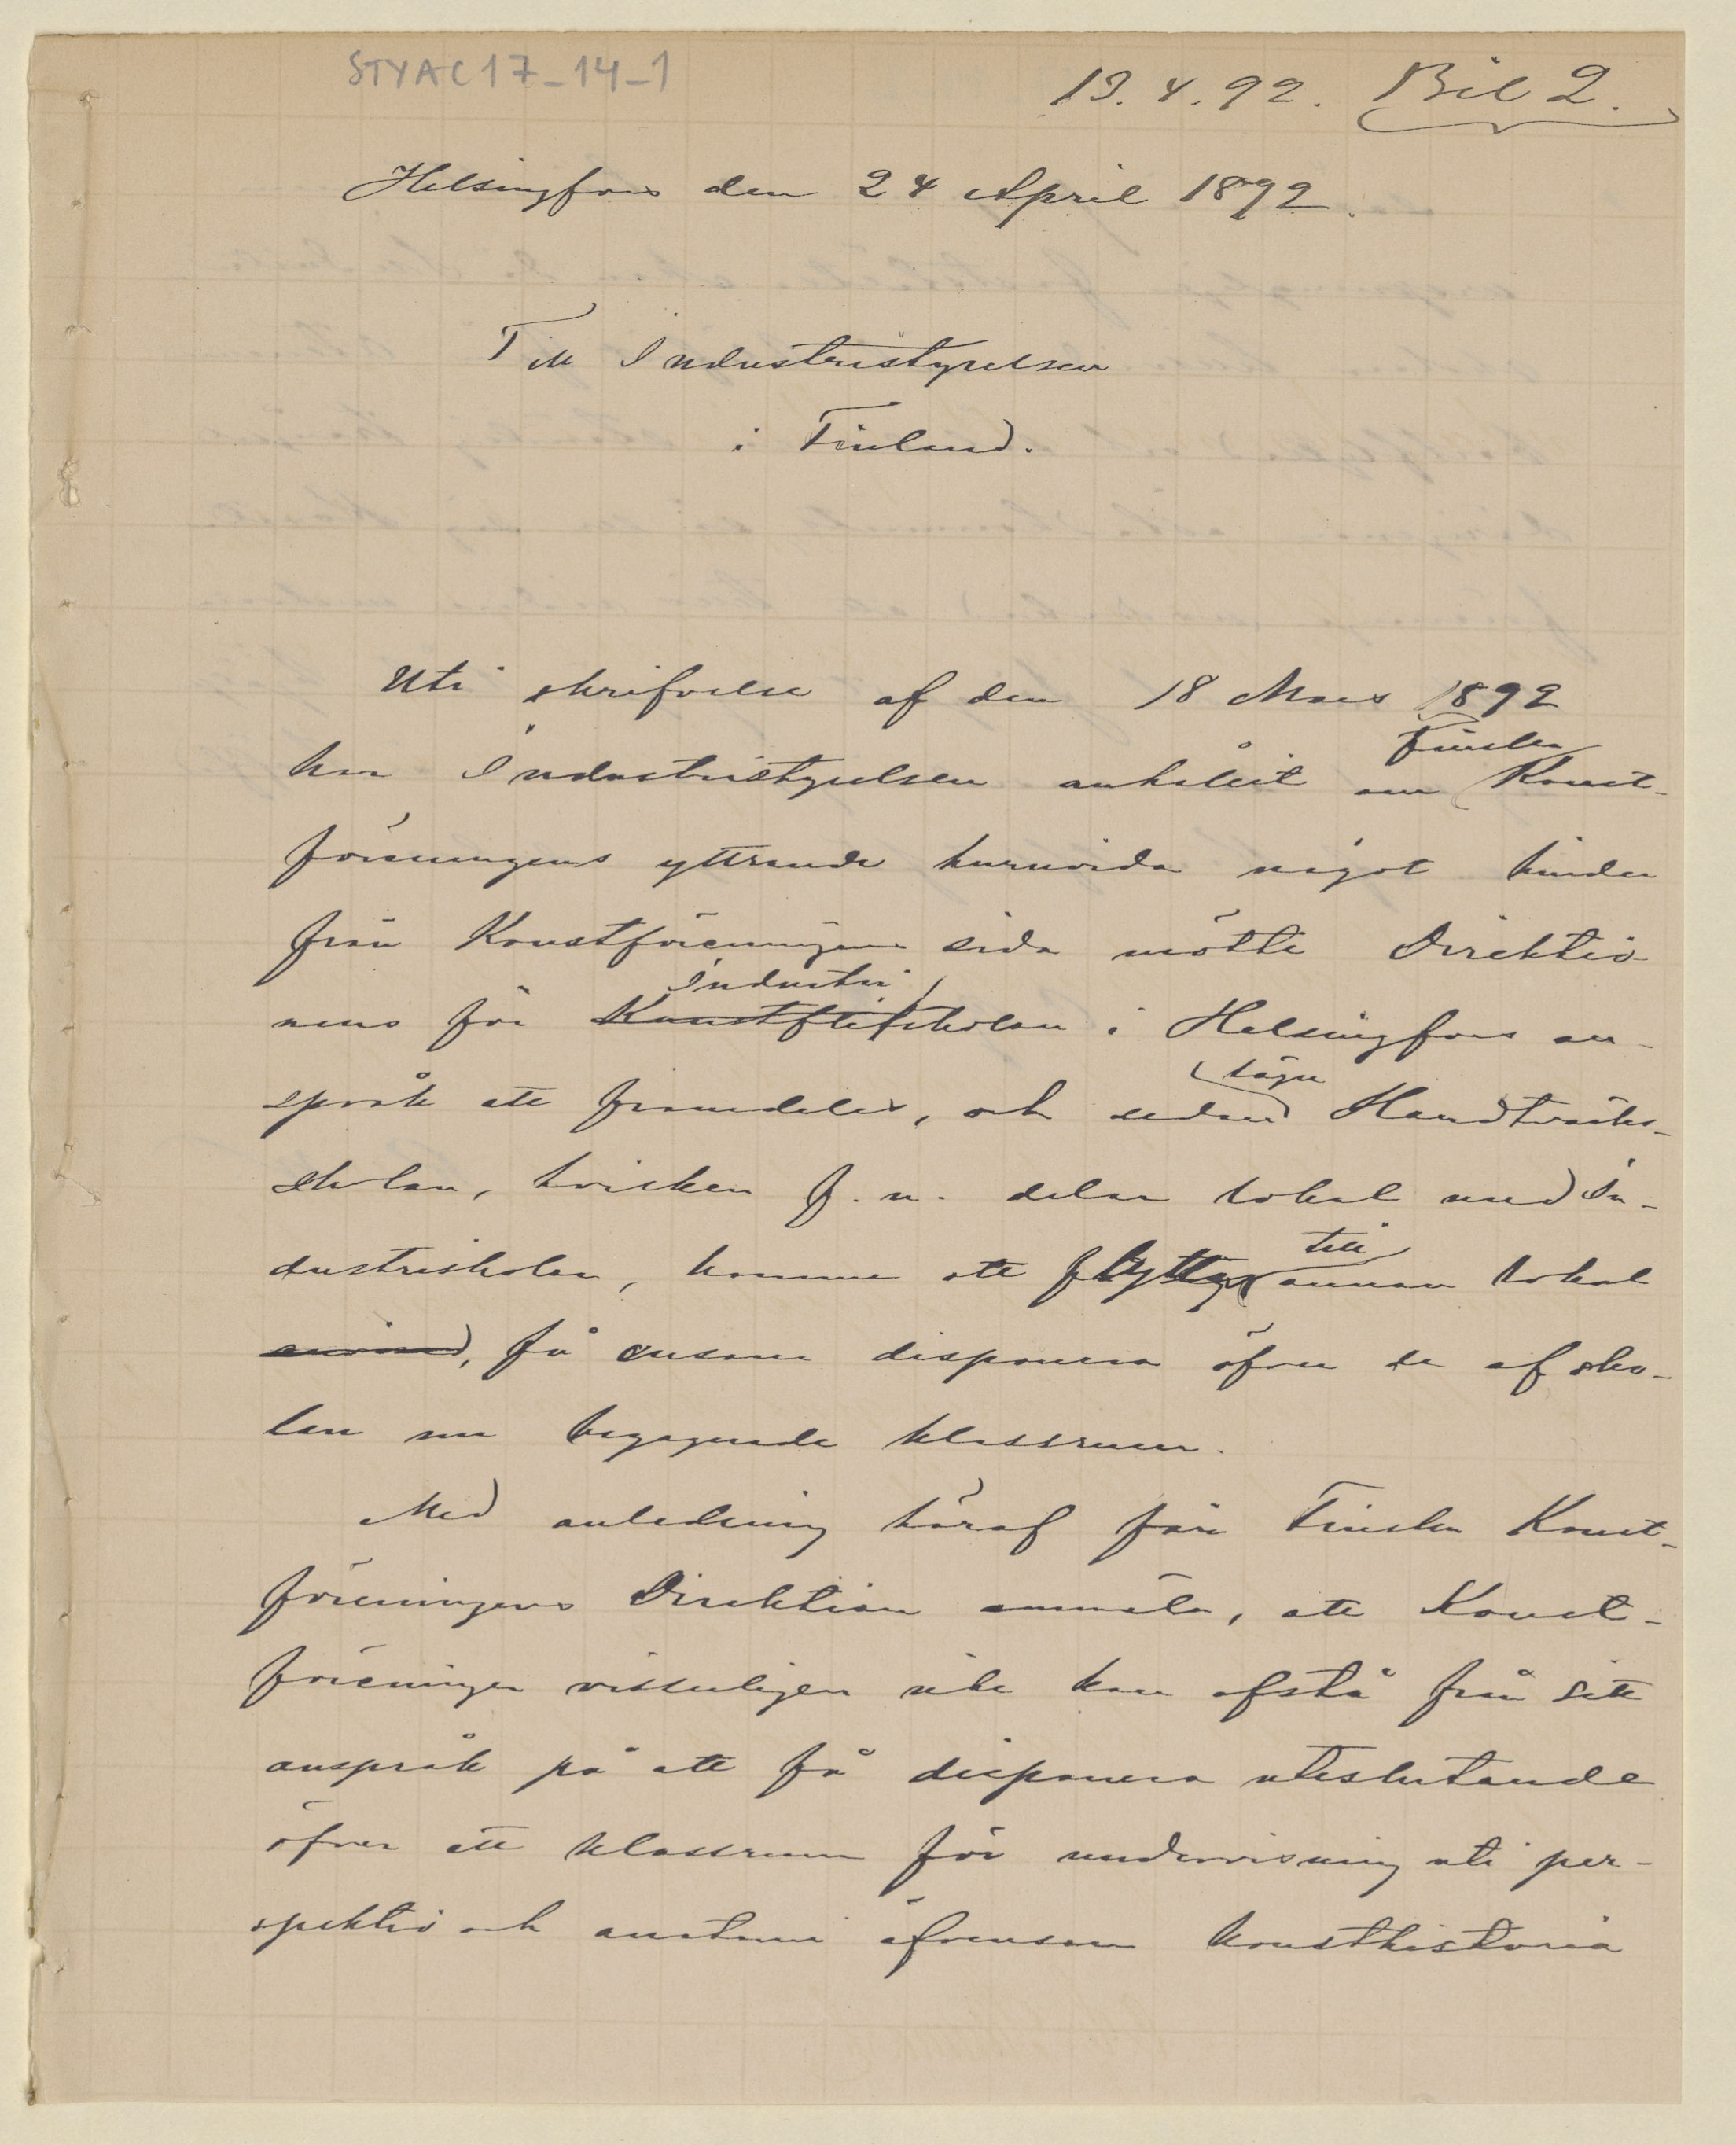 STYAC17-14-1
13.4.92. Bil 2.
Helsingfors den 24 April 1892.
Till Industristyrelsen
i Finland.
Uti skrifvelse af den 18 Mars 1892
Finska
har Industristyrelsen anhållit om Konst-
föreningens yttrande huruvida något hinder
från Konstföreningens sida mötte Direktio-
Industri
nens för Konstflitskolan i Helsingfors an-
språk att framdeles, och sedan Handtverks-
skolan, hvilken f. n. delar lokal med In-
till
dustriskolan, komme att flytta annan lokal
, få ensam disponera öfver de af sko-
lan nu begagnade klassrum.
Med anledning häraf får Finska Konst-
föreningens Direktion anmäla, att Konst-
föreningen visserligen icke kan afstå från sitt
anspråk på att få disponera uteslutande
öfver ett klassrum för undervisning uti per-
spektiv och anatomi äfvensom konsthistoria